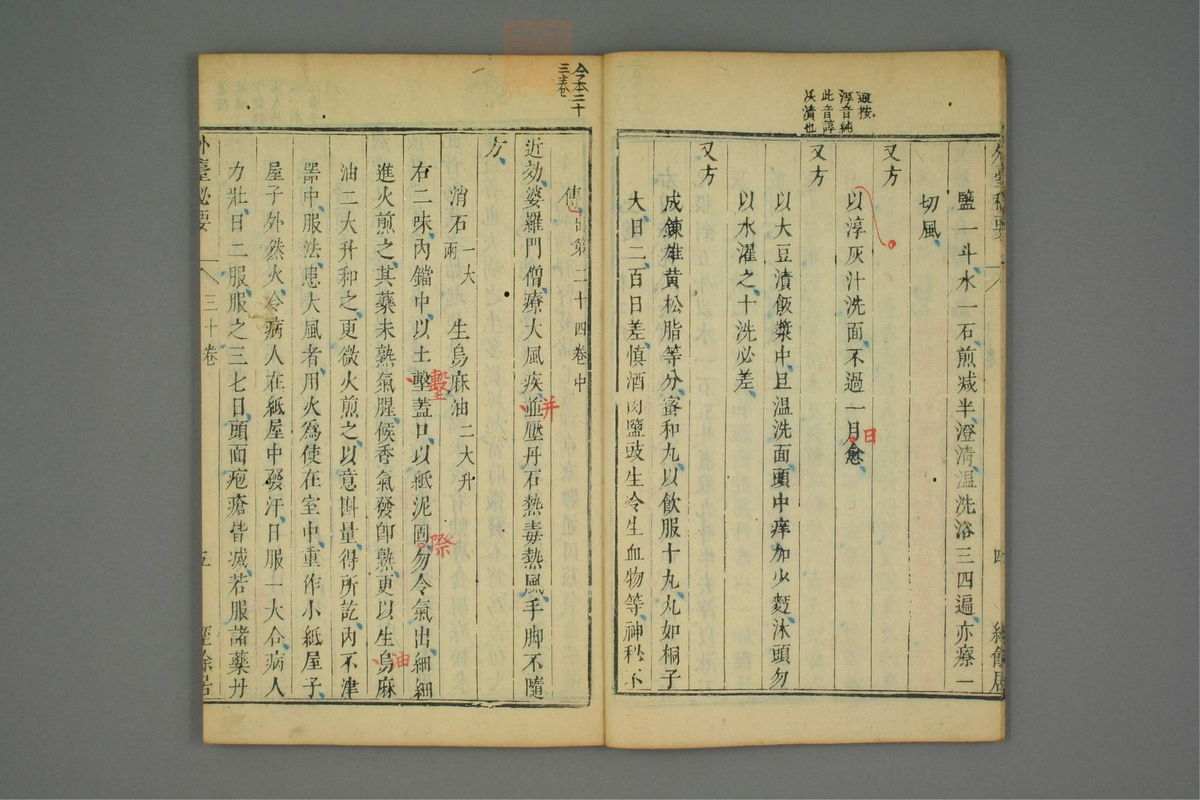 鹽一斗水一石煎減半澄清温洗浴三四遍亦療一
切風
又方
以淳灰汁洗面不過一月愈
日
又方
以大豆漬飯漿中旦温洗面頭中痒加少麪沐頭勿
以水濯之十洗必差
又方
成鍊雄黄松脂等分蜜和丸以飲服十丸丸如桐子
大日二百日差慎酒肉鹽豉生令生血物等神秘不
淳音純
此音諄
沃漬也
四
今本三十
三卷
出第二十四卷中
近効婆羅門僧療大風疾並壓丹石熱毒熱風手脚不隨
并
方
消石一大兩 生烏麻油二大升
右二味内鐺中以土墼蓋口以紙泥固勿令氣出細細
墼
際
進火煎之其藥未熟氣腥候香氣發即熟更以生烏麻
油
油二大升和之更微火煎之以意斟量得所訖内不津
器中服法患大風者用火爲使在室中重作小紙屋子
屋子外然火令病人在紙屋中發汗日服一大合病人
力壯日二服服之三七日頭面疱瘡皆滅若服諸藥丹
外臺秘要
三十卷
五
經餘居